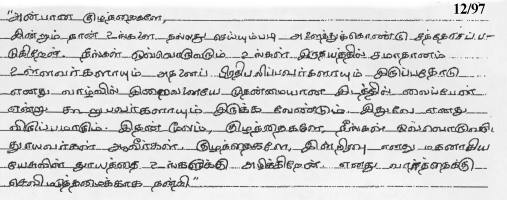 12/97
"அன்பான குழந்தைகளே,
இன்றும் நான் உங்களை நல்லது செய்யும்படி அழைத்துக்கொண்டு சந்தோசப்ப-
டுகிறேன். நீங்கள் ஒவ்வொருவரும் உங்கள் இருதயத்தில் சமாதானம்
உள்ளவர்களாயும் அதனைப் பிரதிபலிப்பவர்களாயும் இருப்பதோடு
எனது வாழ்வில் இறைவனையே முதன்மையான இடத்தில் வைப்பேன்
என்று கூறுபவர்களாயும் இருக்க வேண்டும். இதுவே எனது
விருப்பமாகும். இதன் மூலம், குழந்தைகளே, நீங்கள் ஒவ்வொருவரும்
தூயவர்கள் ஆவீர்கள். குழந்தைகளே, இன்றிரவு எனது மகனாகிய
யேசுவின் தூயத்தை உங்களுக்கு அளிக்கிறேன். எனது வார்த்தைக்கு
செவிமடுத்தமைக்காக நன்றி"